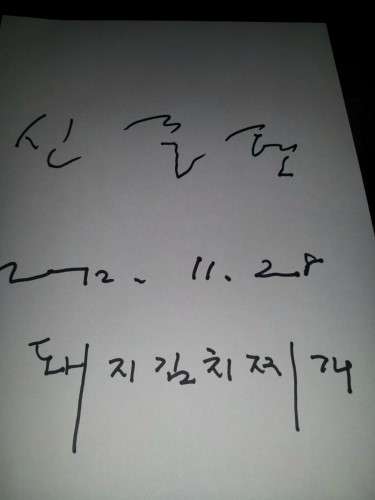 신
2012. 11. 28
돼지김치찌개